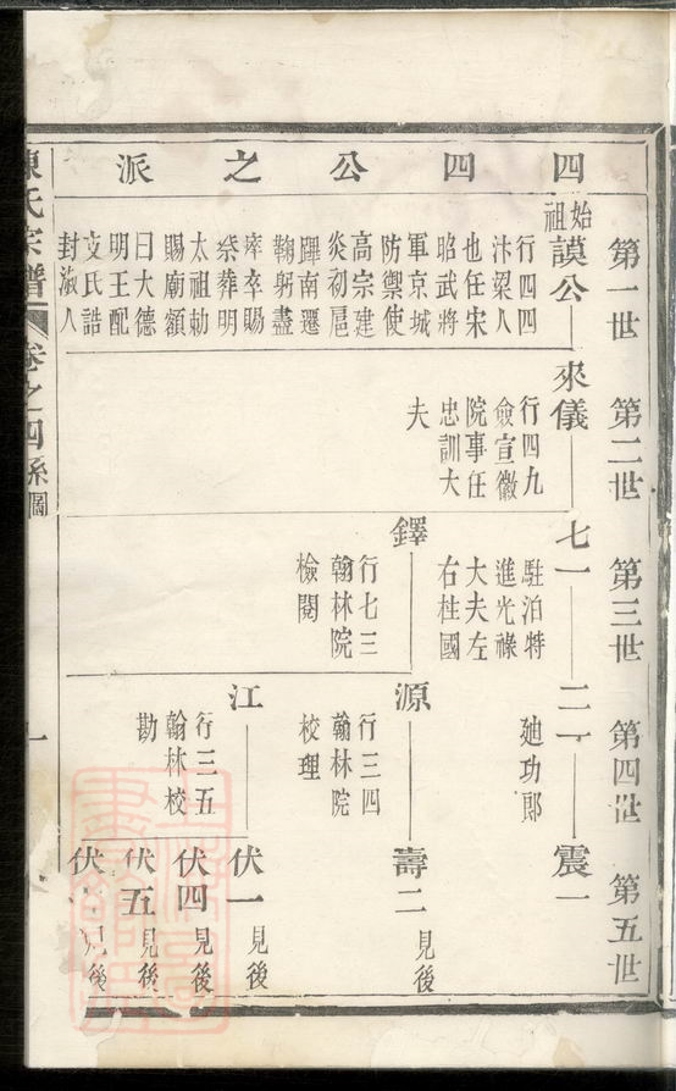 四四公之派
第一世
始祖
謨公
行四四
汴梁人
也任宋
昭武將
軍京城
防禦使
高宗建
炎初扈
蹕南遷
鞠躬盡
瘁卒賜
祭葬明
太祖勅
賜廟額
曰大德
明王配
文氏誥
封淑人
第二世
來儀
行四九
僉宣徽
院事任
忠訓大
夫
第三世
七一
駐泊特
進光祿
大夫左
右柱國
鐸
行七三
翰林院
檢閱
第四世
二一
廸功郎
源
行三四
翰林院
校理
江
行三五
翰林校
勘
第五世
震一
壽二
見後
伏一
見後
伏四
見後
伏五
見後
伏
見後
陳氏宗譜
卷之四系圖
一